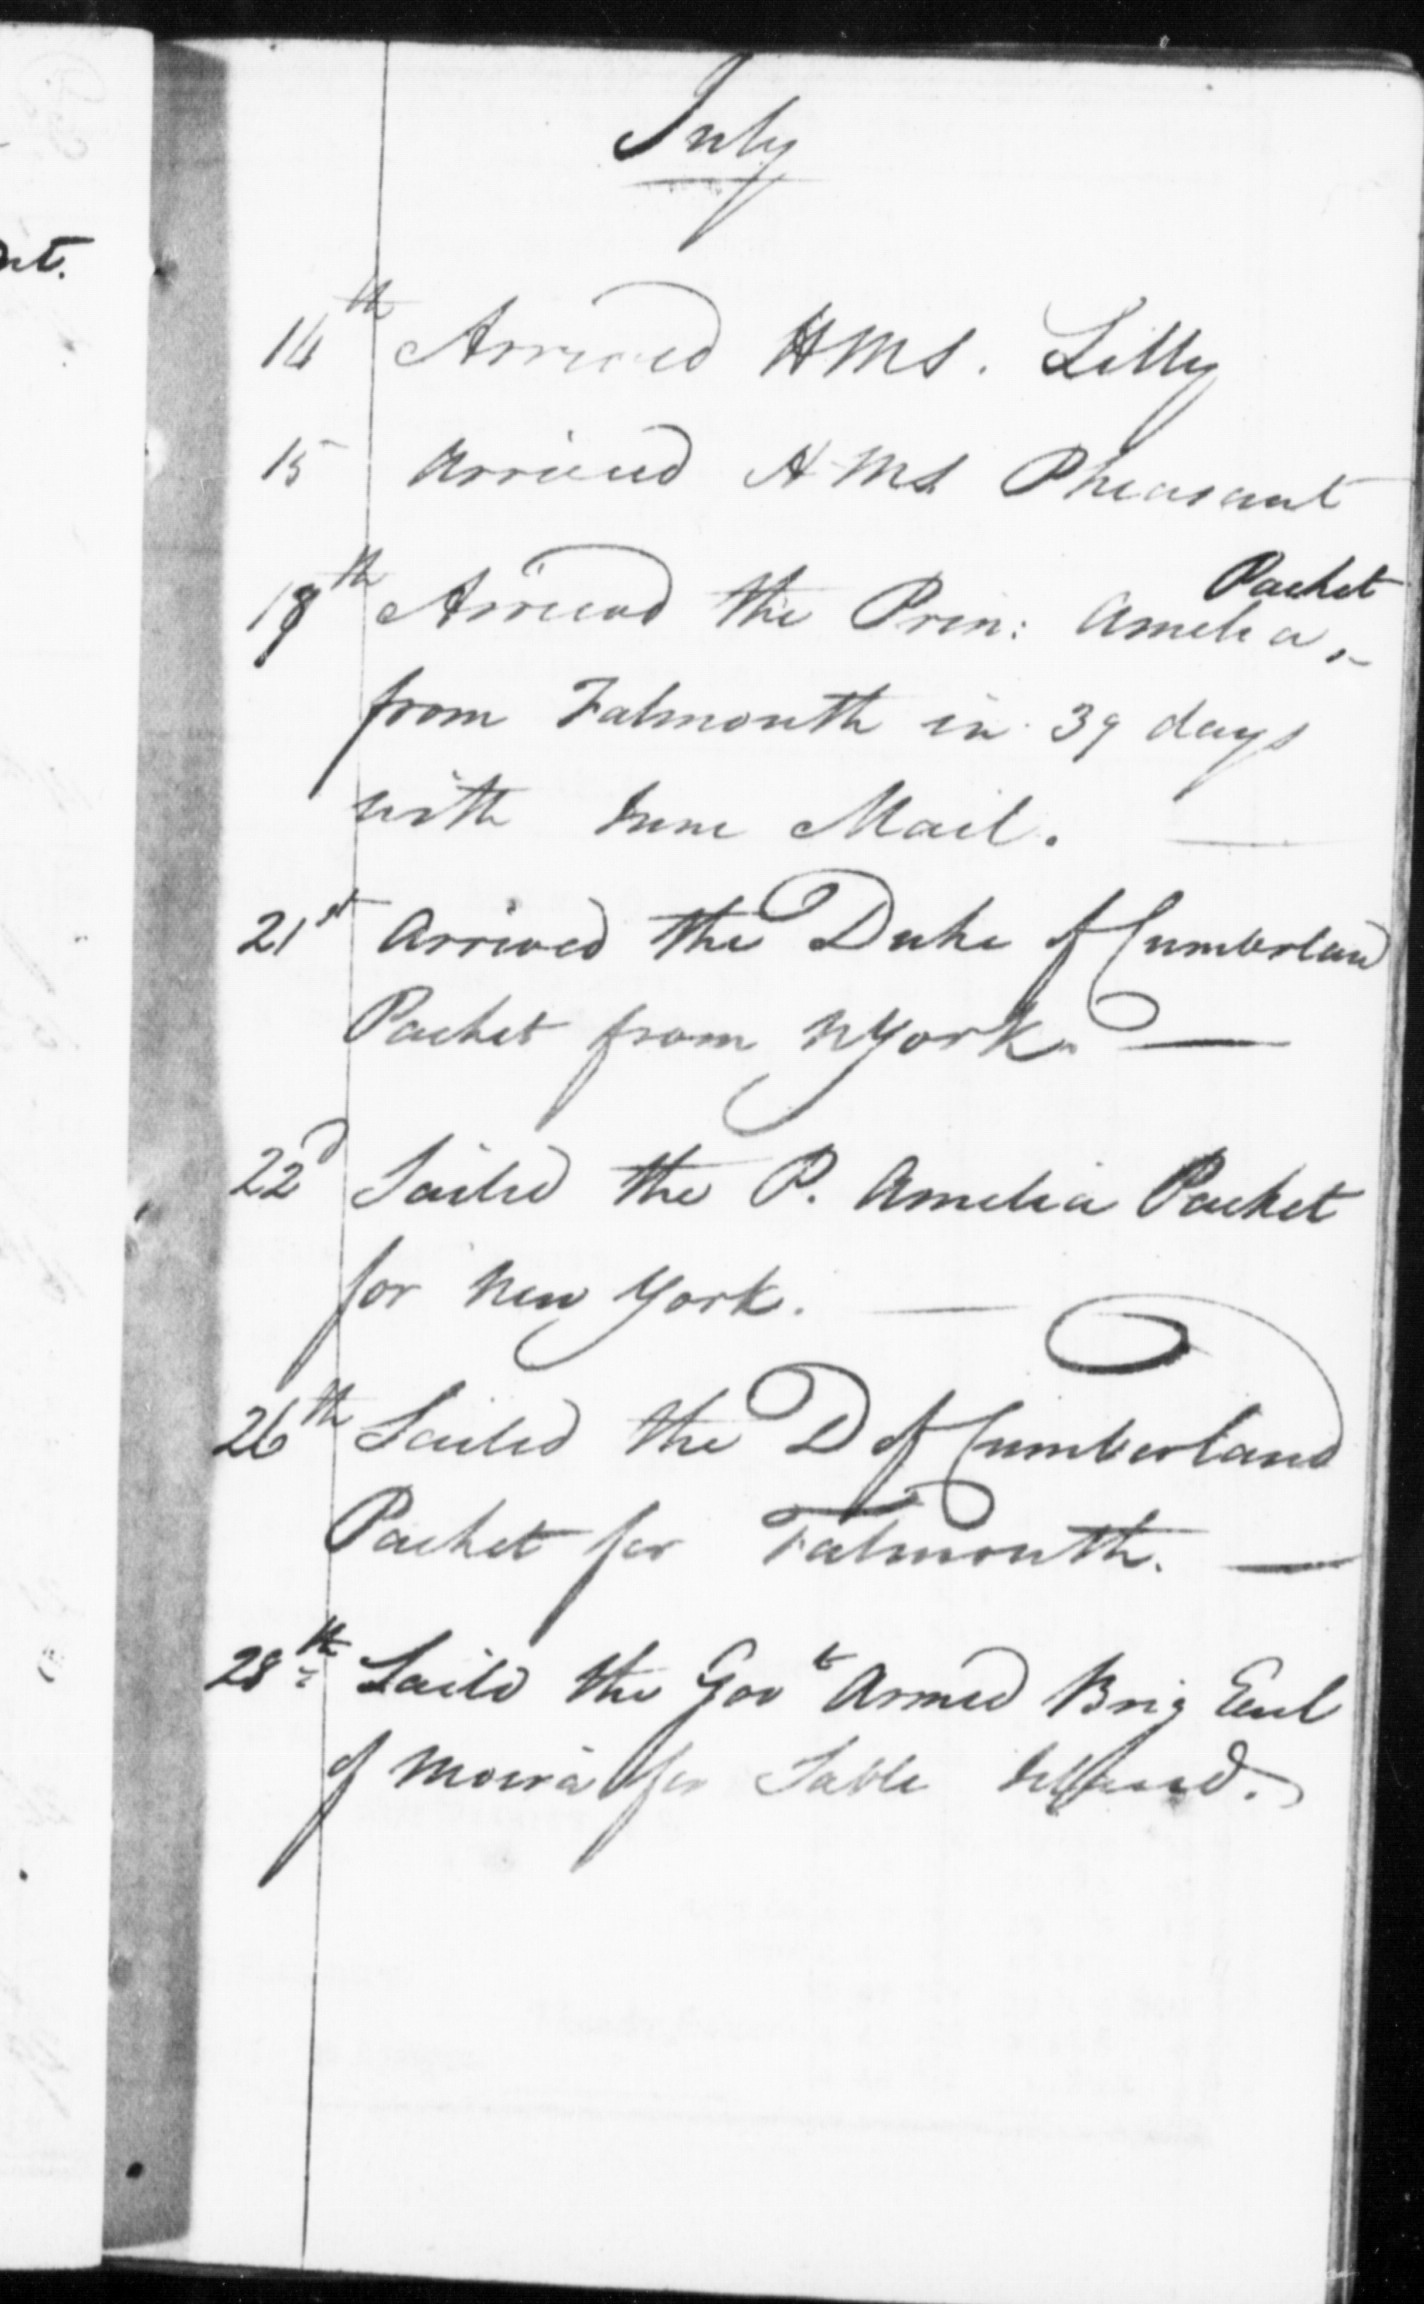 nt.
July
14th Arrived HMS. Lilly
15 arrived HMS Pheasant
18th Arrived the Prin: Amelia, Packet
from Falmouth in 39 days
with June Mail.
21st arrived the Duke of Cumberland
Packet from NYork.
22d Sailed the P. Amelia Packet
for New York.
26th Sailed the D of Cumberland
Packet for Falmouth.
28th Saild the Govt Armed Brig Earl
of Moira for Sable Island.